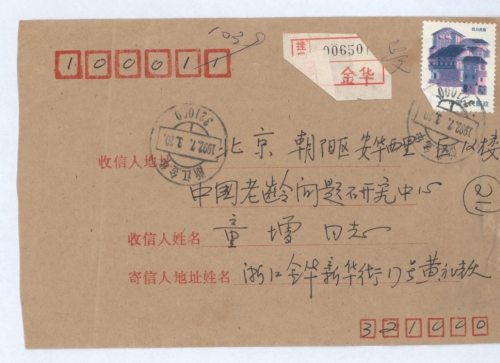 100011
挂
00650
金华
中国人民邮政
321000
1992.7.3.20
浙江金华
收信人地址 北京朝阳区安华西里一区12楼
中国老龄问题研究中心
收信人姓名 童 同志
寄信人地址姓名 浙江金华新华街17号黄
321000